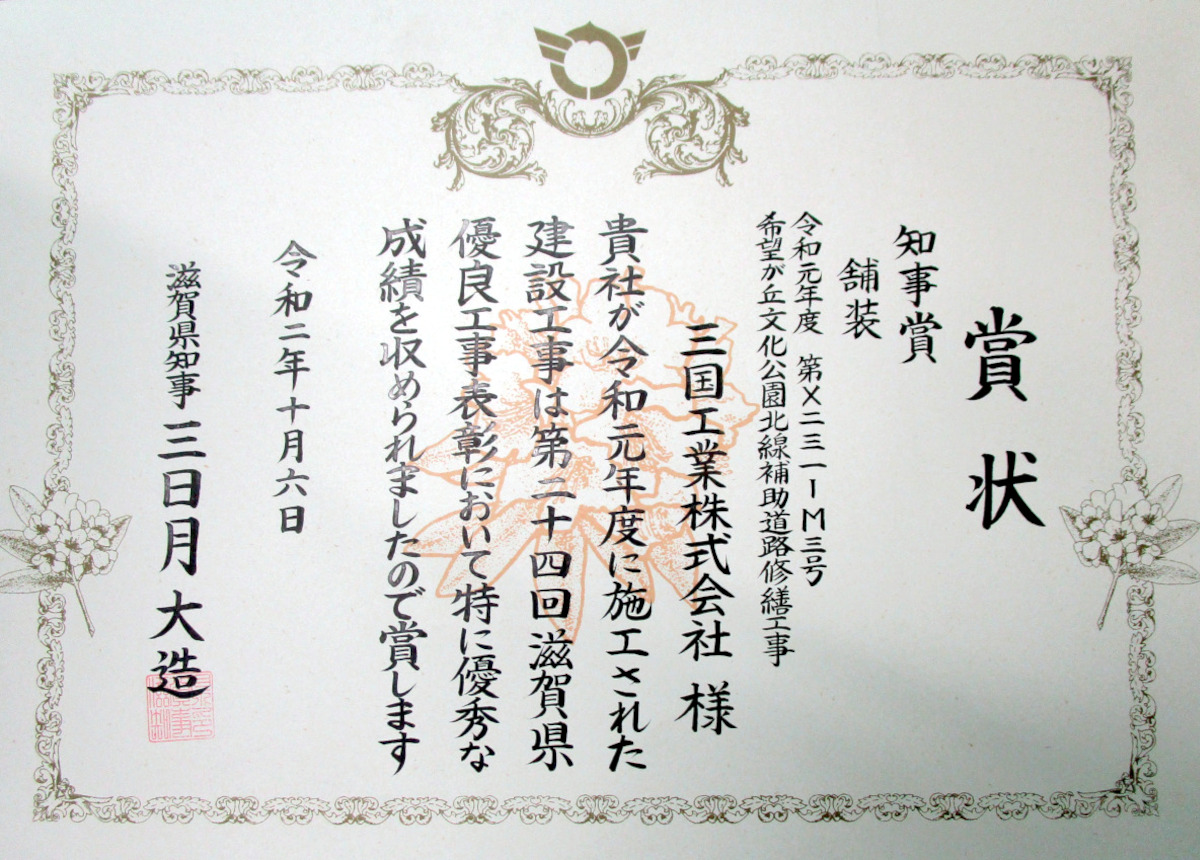 賞状
知事賞
舗装
令和元年度 第X二三一ーM三号
希望が丘文化公園北線補助道路修繕工事
三国工業株式会社 様
貴社が令和元年度に施工された
建設工事は第二十四回滋賀県
優良工事表彰において特に優秀な
成績を収められましたので賞します
令和二年十月六日
滋賀県知事 三日月大造